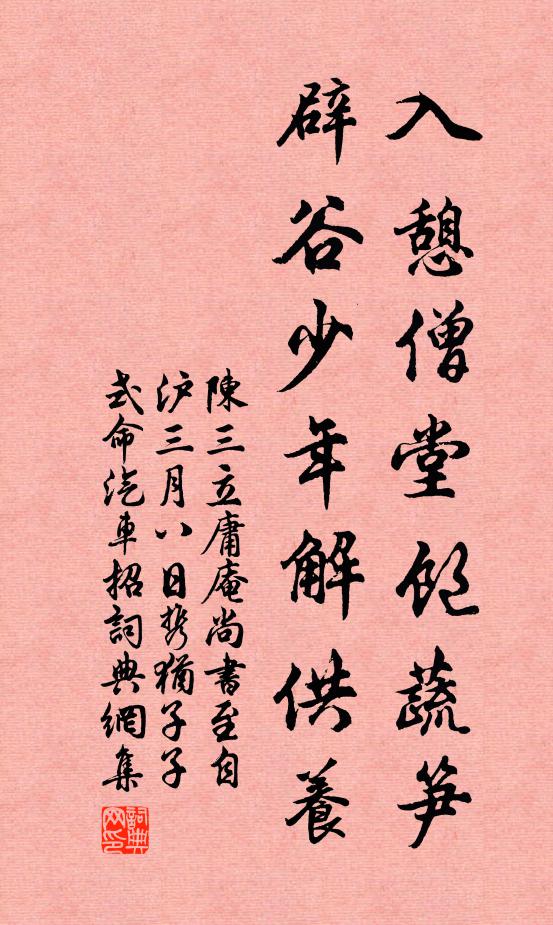 入憩僧堂飽蔬笋
辟谷少年解供養
陳三立庸庵尚書至自
沪三月八日携猶子子
式命汽車招詞典網集
詞典
网印